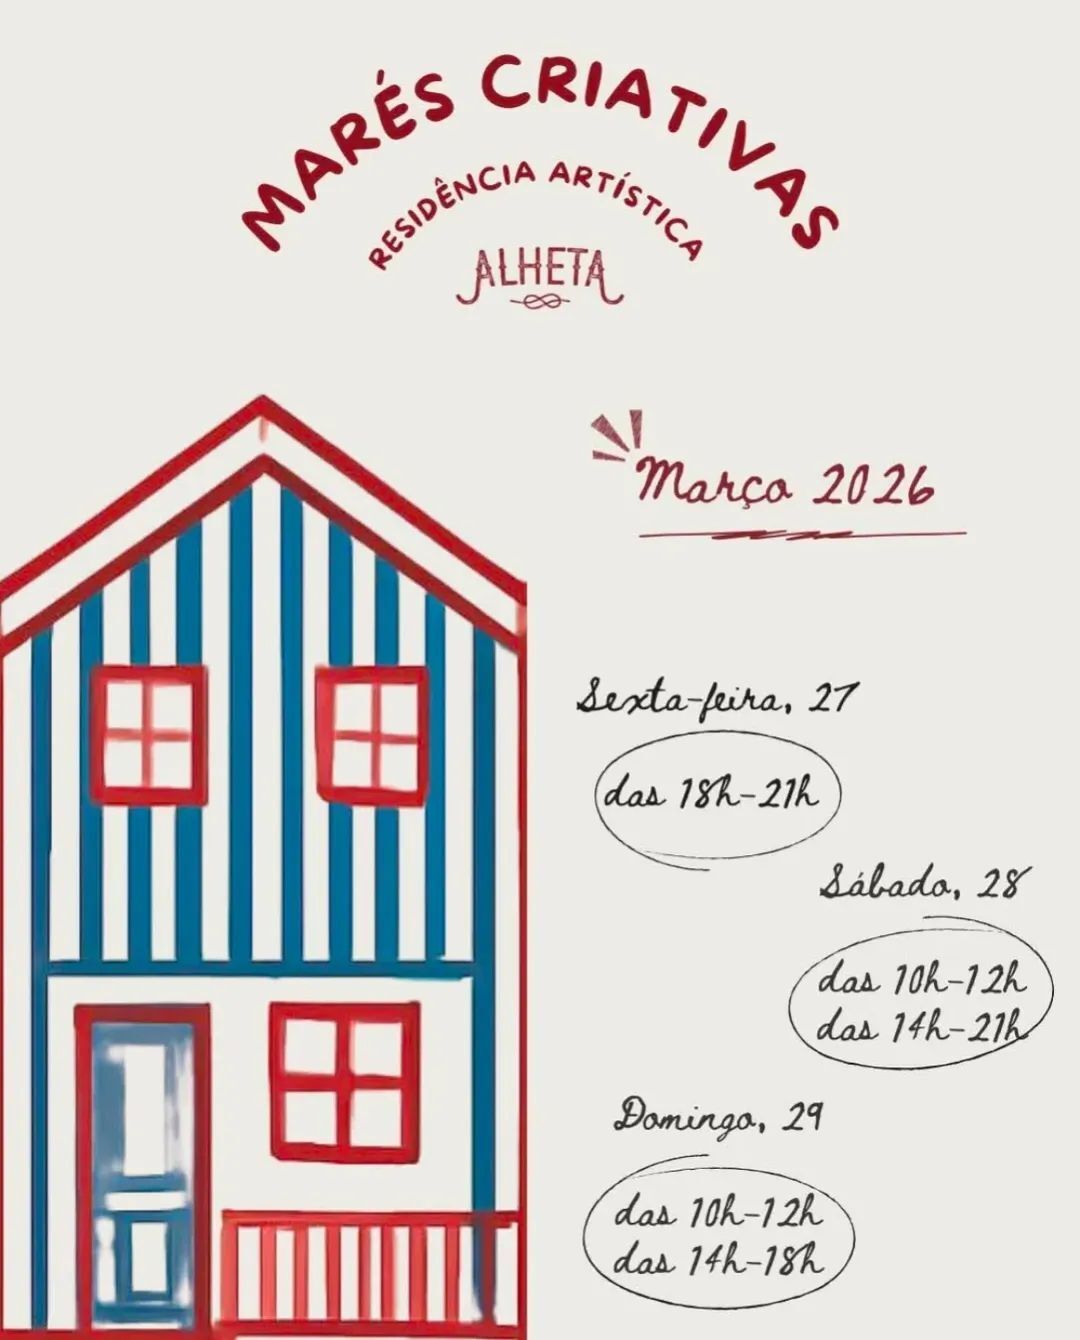 MARÉS CRIATIVAS
RESIDÊNCIA ARTÍSTICA
ALHETA
Março 2026
Sexta-feira, 27
das 18h-21h
Sábado, 28
das 10h-12h
das 14h-21h
Domingo, 29
das 10h-12h
das 14h-18h